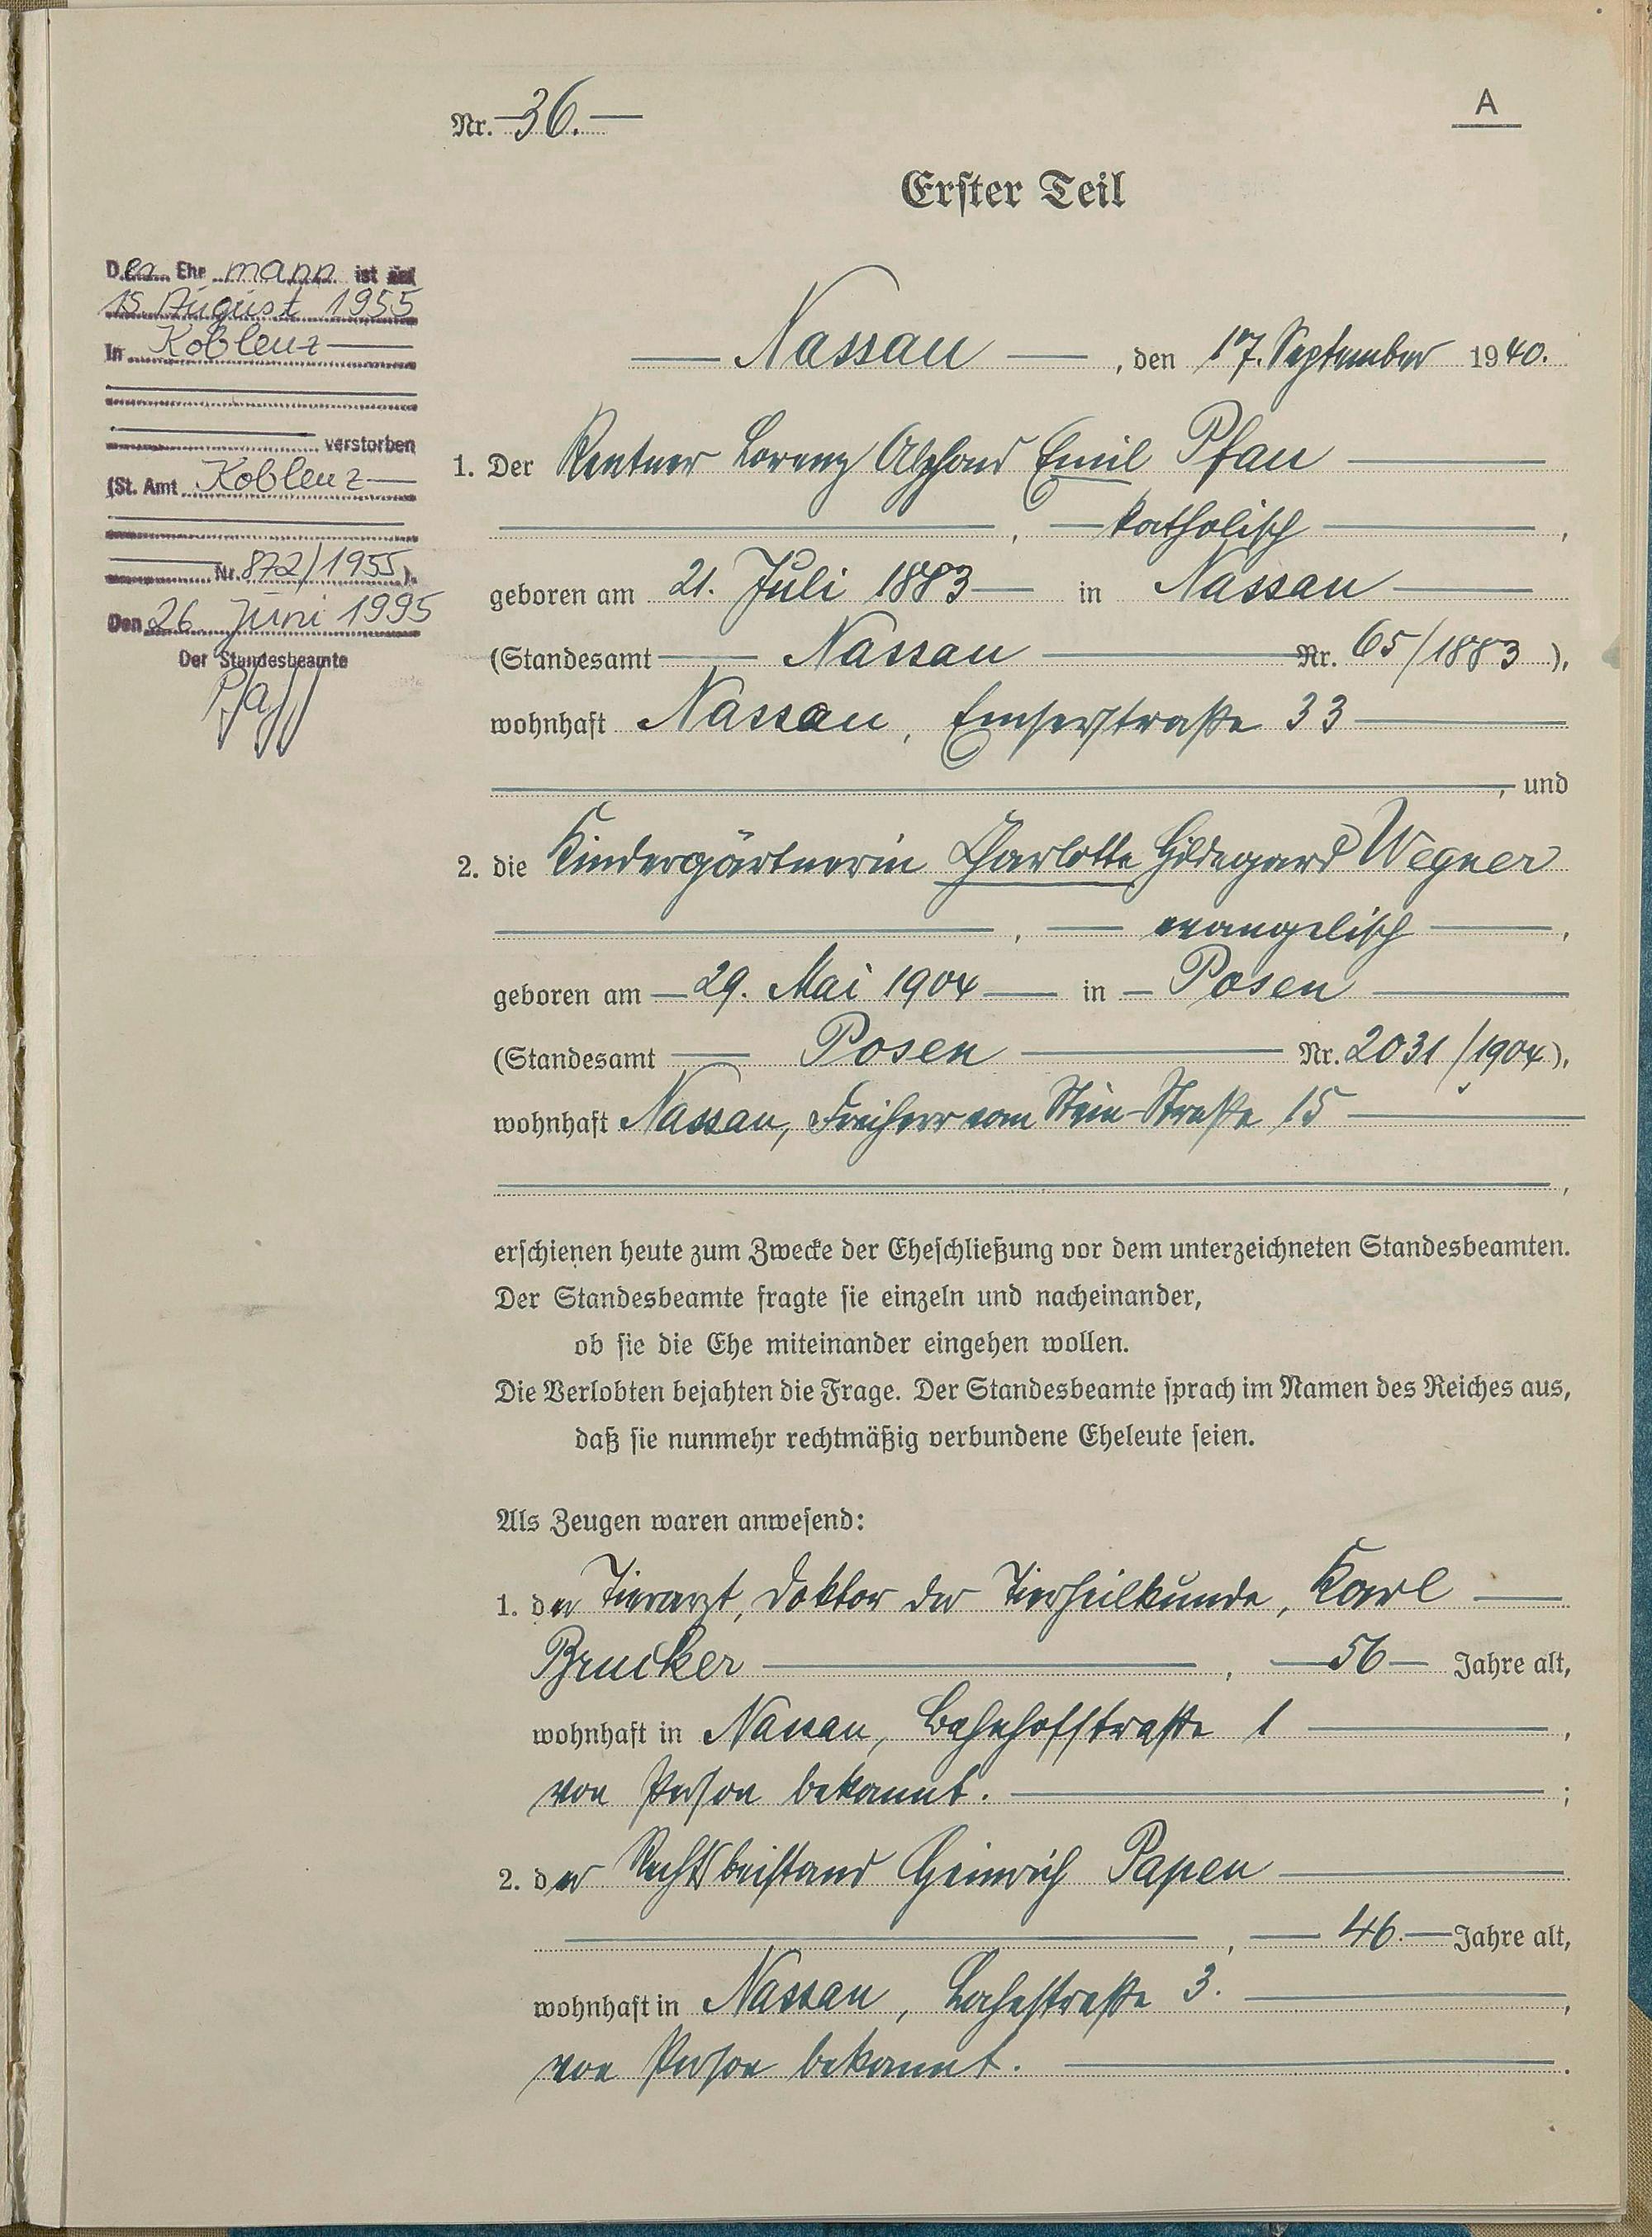 Nr. 36.
A
Erster Teil
Der Ehemann ist am
15. August 1955
in Koblenz
verstorben
(St. Amt Koblenz
Nr. 872/1955).
Den 26. Juni 1995
Der Standesbeamte
Nassau, den 17. September 1940.
1. Der Rentner Lorenz Alphons Emil Pfau
, katholisch,
geboren am 21. Juli 1883 in Nassau
(Standesamt Nassau Nr. 65/1883),
wohnhaft Nassau, Emserstraße 33
, und
2. die Kindergärtnerin Charlotte Hildegard Wegner
, evangelisch,
geboren am 29. Mai 1904 in Posen
(Standesamt Posen Nr. 2031/1904),
wohnhaft Nassau, Freiherr vom Stein-Straße 15
,
erschienen heute zum Zwecke der Eheschließung vor dem unterzeichneten Standesbeamten.
Der Standesbeamte fragte sie einzeln und nacheinander,
ob sie die Ehe miteinander eingehen wollen.
Die Verlobten bejahten die Frage. Der Standesbeamte sprach im Namen des Reiches aus,
daß sie nunmehr rechtmäßig verbundene Eheleute seien.
Als Zeugen waren anwesend:
1. der Tierarzt, Doktor der Tierheilkunde, Karl
Brucker, 56 Jahre alt,
wohnhaft in Nassau, Bahnhofstraße 1,
von Person bekannt. ;
2. der Rechtsbeistand Heinrich Papen
, 46. Jahre alt,
wohnhaft in Nassau, Lahnstraße 3. ,
von Person bekannt. .